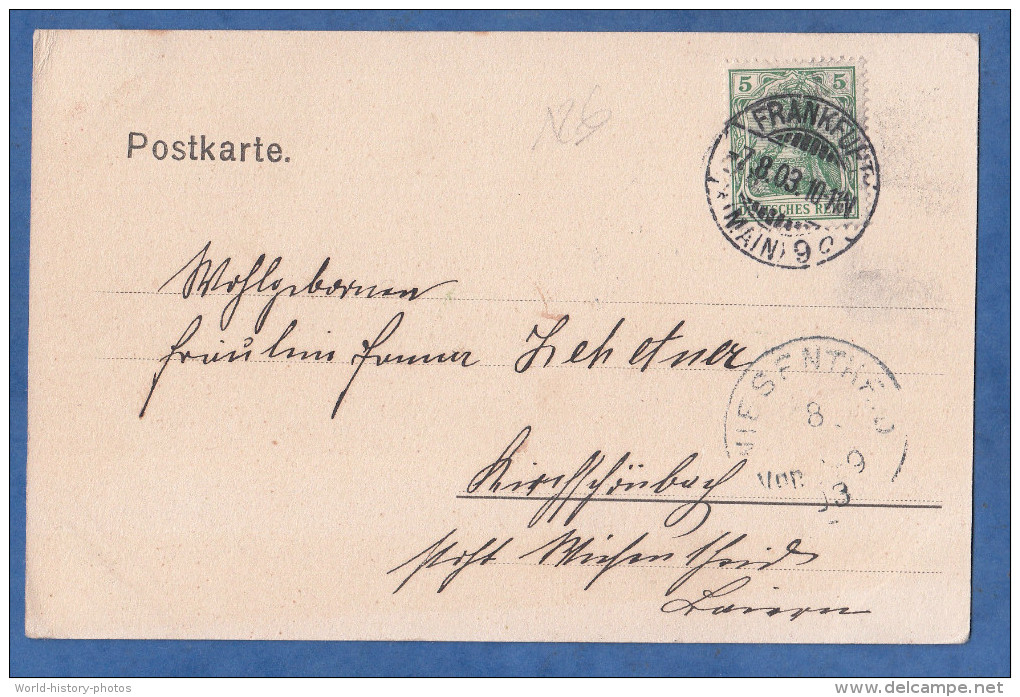 5 5
FRANKFURT
7.8.03.10-11V
(MAIN) 9
DEUTSCHES REICH
Postkarte.
Wohlgeboren
Fräulein Zehetner
WIESENTHEID
8
VOR 9
03
Kirchschönbach
Post Wiesentheid
Baiern
World-history-photos
delcampe.net